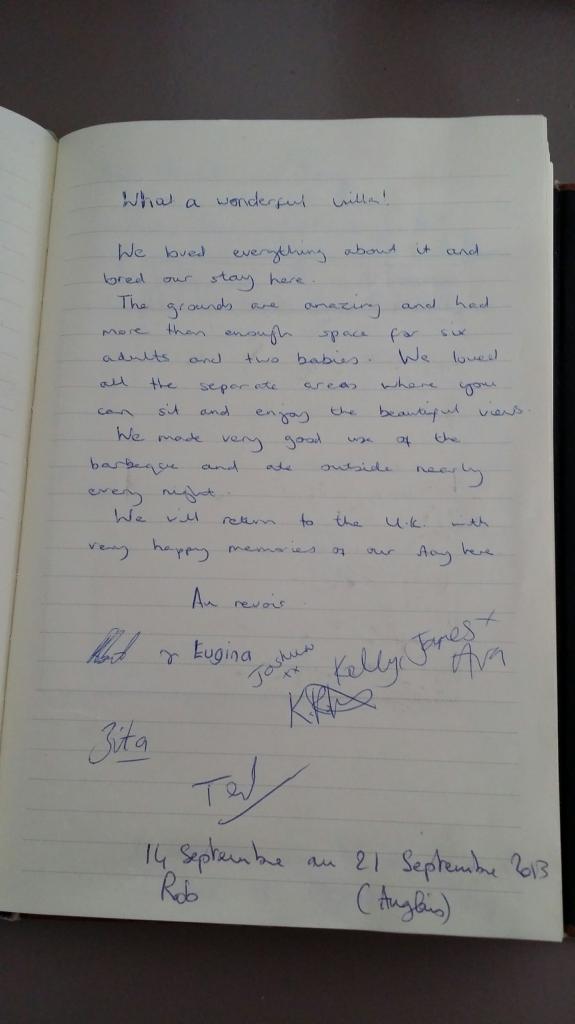 What a wonderful villa!
We loved everything about it and
loved our stay here.
The grounds are amazing and had
more than enough space for six
adults and two babies. We loved
all the separate areas where you
can sit and enjoy the beautiful views.
We made very good use of the
barbeque and ate outside nearly
every night.
We will return to the U.K. with
very happy memories of our stay here
Au revoir
& Eugina Joshua xx Kelly James x
Ava
Zita
Ted
14 Septembre au 21 Septembre 2013
Rob (Anglais)